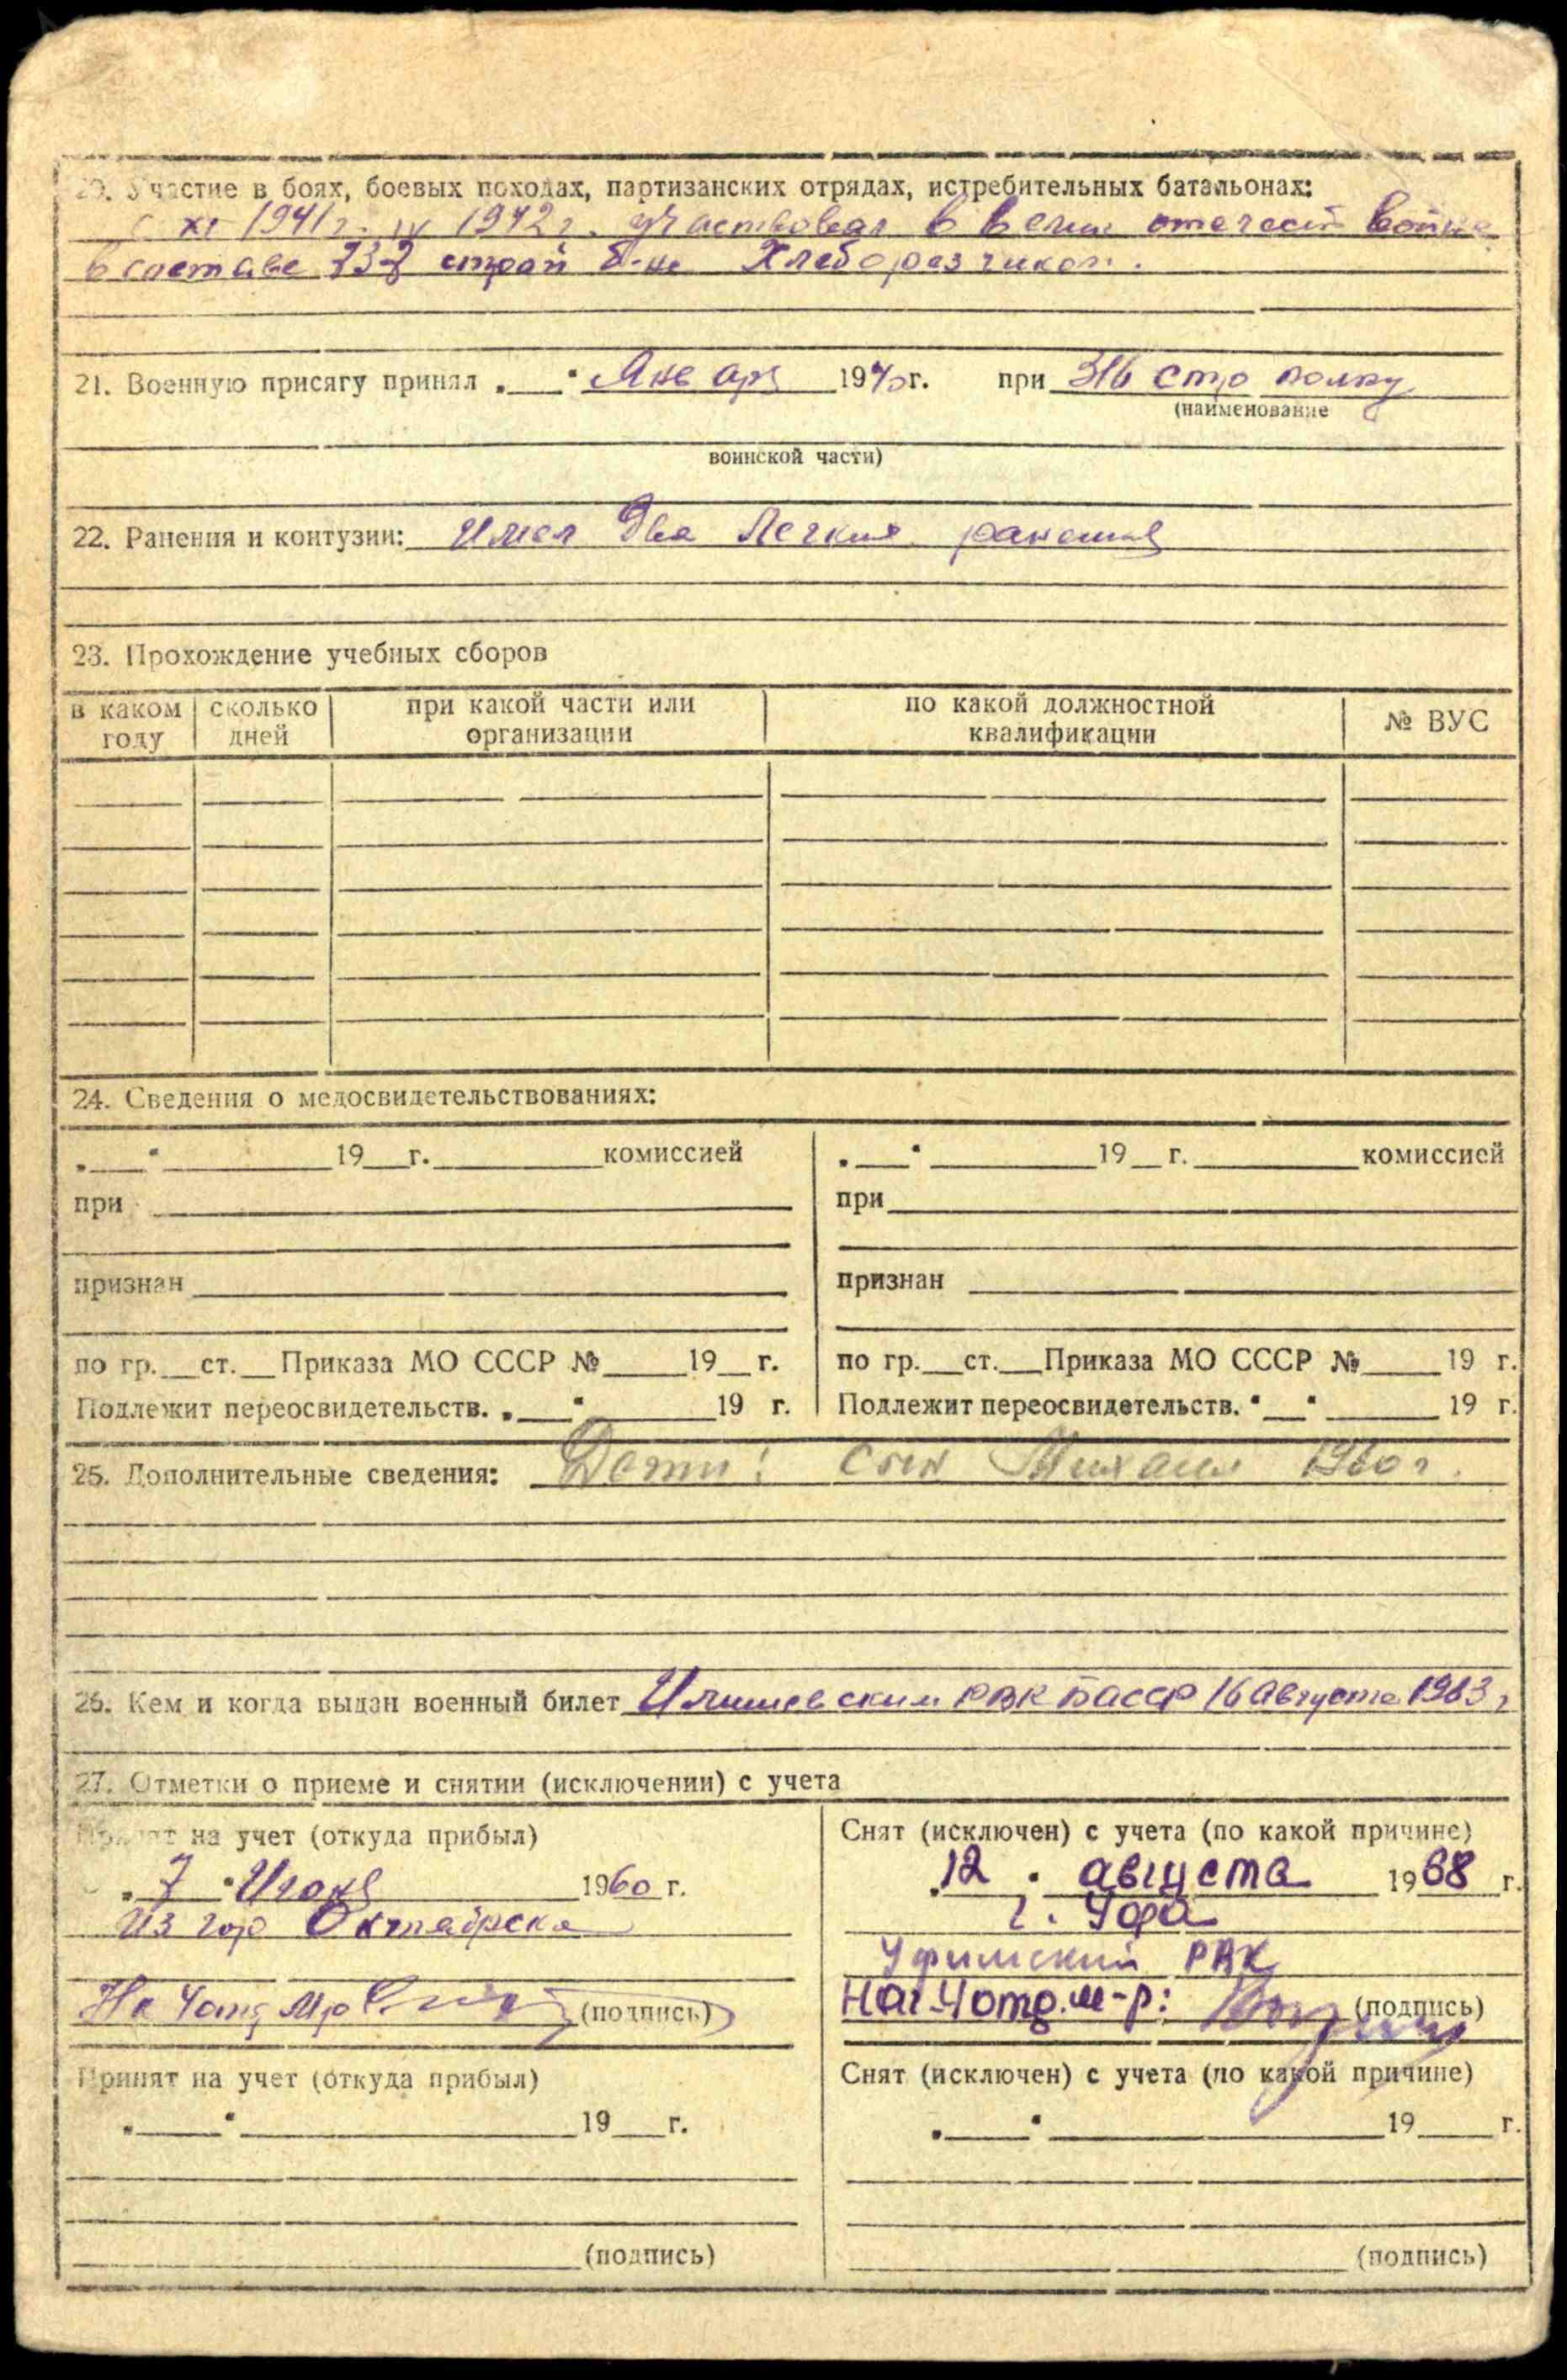 20. Участие в боях, боевых походах, партизанских отрядах, истребительных батальонах:
с XI 1941 г. IV 1942 г. участвовал в велик отечест войне
в составе строй б-не Хлеборезчиком.
21. Военную присягу принял „ “ Январь 1940 г. при 316 стр полку
(наименование
воинской части)
22. Ранения и контузии: Имел два легкие ранения
23. Прохождение учебных сборов
в каком году сколько дней при какой части или организации по какой должностной квалификации № ВУС
24. Сведения о медосвидетельствованиях:
„ “ 19 г. комиссией „ “ 19 г. комиссией
при при
признан признан
по гр. ст. Приказа МО СССР № 19 г. по гр. ст. Приказа МО СССР № 19 г.
Подлежит переосвидетельств. „ “ 19 г. Подлежит переосвидетельств. “ “ 19 г.
25. Дополнительные сведения: Дети: сын Михаил 1960 г.
26. Кем и когда выдан военный билет Илишевским РВК БАССР 16 августа 1963 г
27. Отметки о приеме и снятии (исключении) с учета
Принят на учет (откуда прибыл)
„ 7 “ Июня 1960 г.
из гор Октябрска
(подпись)
Снят (исключен) с учета (по какой причине)
„ 12 “ августа 1968 г.
г. Уфа
Уфимский РВК
Нач. 4 отд. м-р: (подпись)
Принят на учет (откуда прибыл)
„ “ 19 г.
(подпись)
Снят (исключен) с учета (по какой причине)
„ “ 19 г.
(подпись)